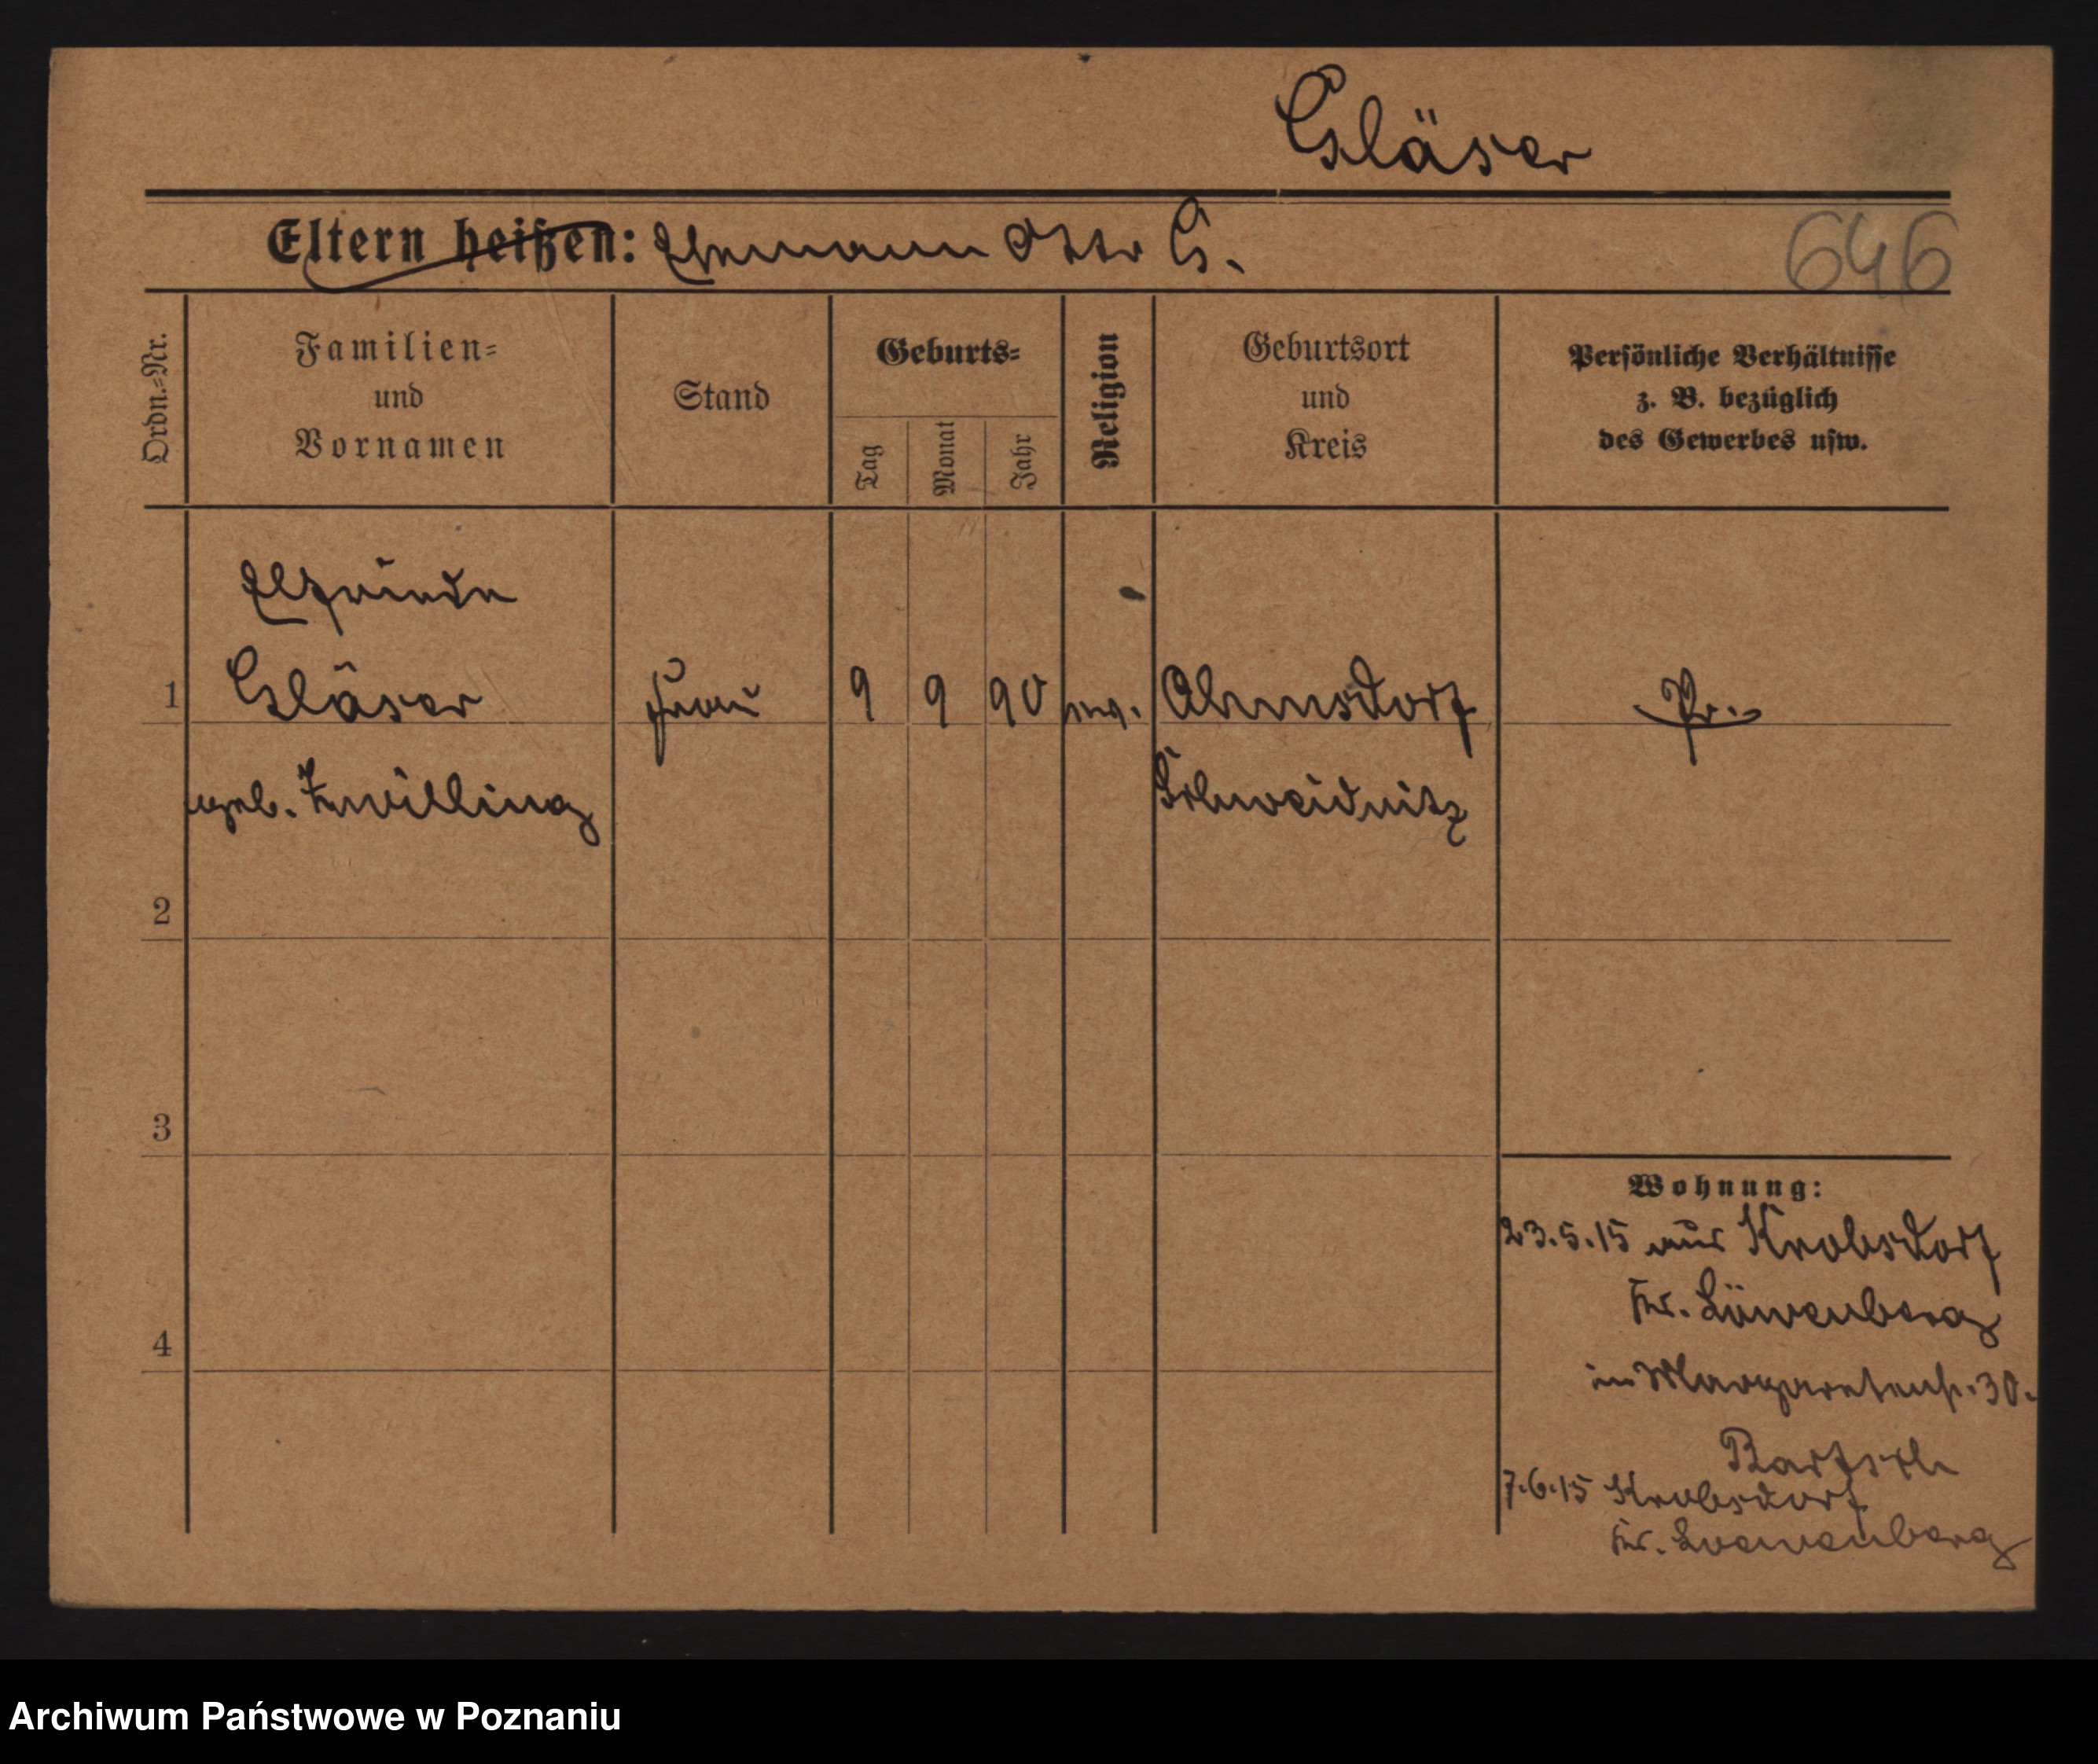 Gläser
Eltern heißen: Ehemann Otto G.
646
Ordn.-Nr.
Familien-
und
Vornamen
Stand
Geburts-
Tag
Monat
Jahr
Religion
Geburtsort
und
Kreis
Persönliche Verhältnisse
z. B. bezüglich
des Gewerbes usw.
Elfriede
1 Gläser Frau 9 9 90 ev. Pr.
geb. Zwilling Schweidnitz
2
3
4
Wohnung:
23.5.15 aus Krobsdorf
Kr. Löwenberg
in Margaretenst. 30.
Bartsch
7.6.15 Krobsdorf
Kr. Loewenberg
Archiwum Państwowe w Poznaniu